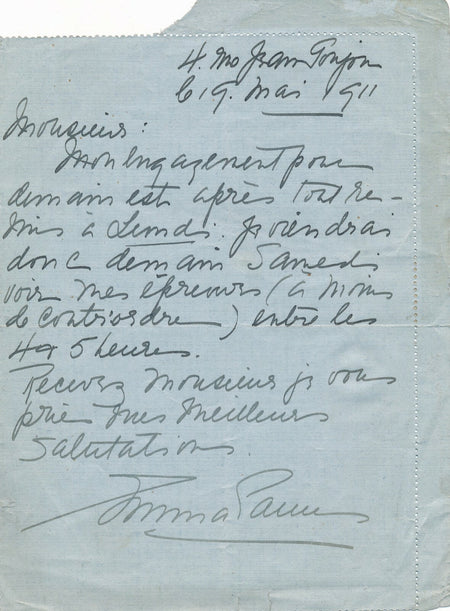 4. rue Jean Goujon
le 19. Mai 1911
Monsieur:
Mon engagement pour
demain est après tout re-
mis à Lundi. Je viendrai
donc demain Samedi
voir mes épreuves (à moins
de contrordre) entre les
4 & 5 heures.
Recevez Monsieur je vous
prie mes meilleures
salutations.
Emma Eames